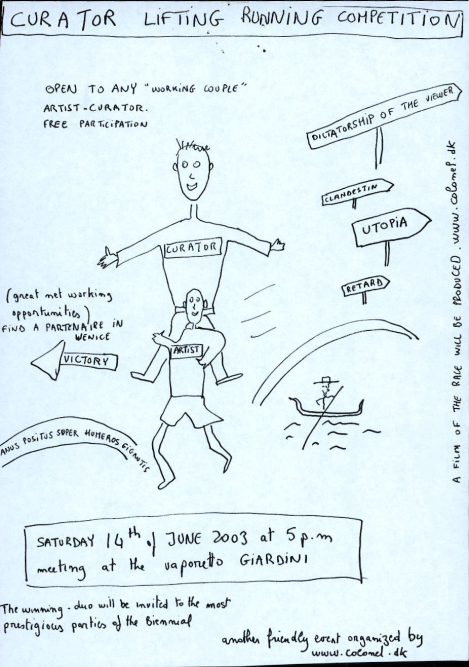 CURATOR LIFTING RUNNING COMPETITION
OPEN TO ANY "WORKING COUPLE"
ARTIST-CURATOR.
FREE PARTICIPATION
DICTATORSHIP OF THE VIEWER
CLANDESTIN
UTOPIA
RETARD
CURATOR
ARTIST
(great net working
opportunities)
FIND A PARTENAIRE IN
VENICE
VICTORY
ANUS POSITUS SUPER HOMEROS GIGANTIS
A FILM OF THE RACE WILL BE PRODUCED. www.colonel.dk
SATURDAY 14th of JUNE 2003 at 5 p.m
meeting at the vaporetto GIARDINI
The winning-duo will be invited to the most
prestigious parties of the Biennial
another friendly event organized by
www.colonel.dk